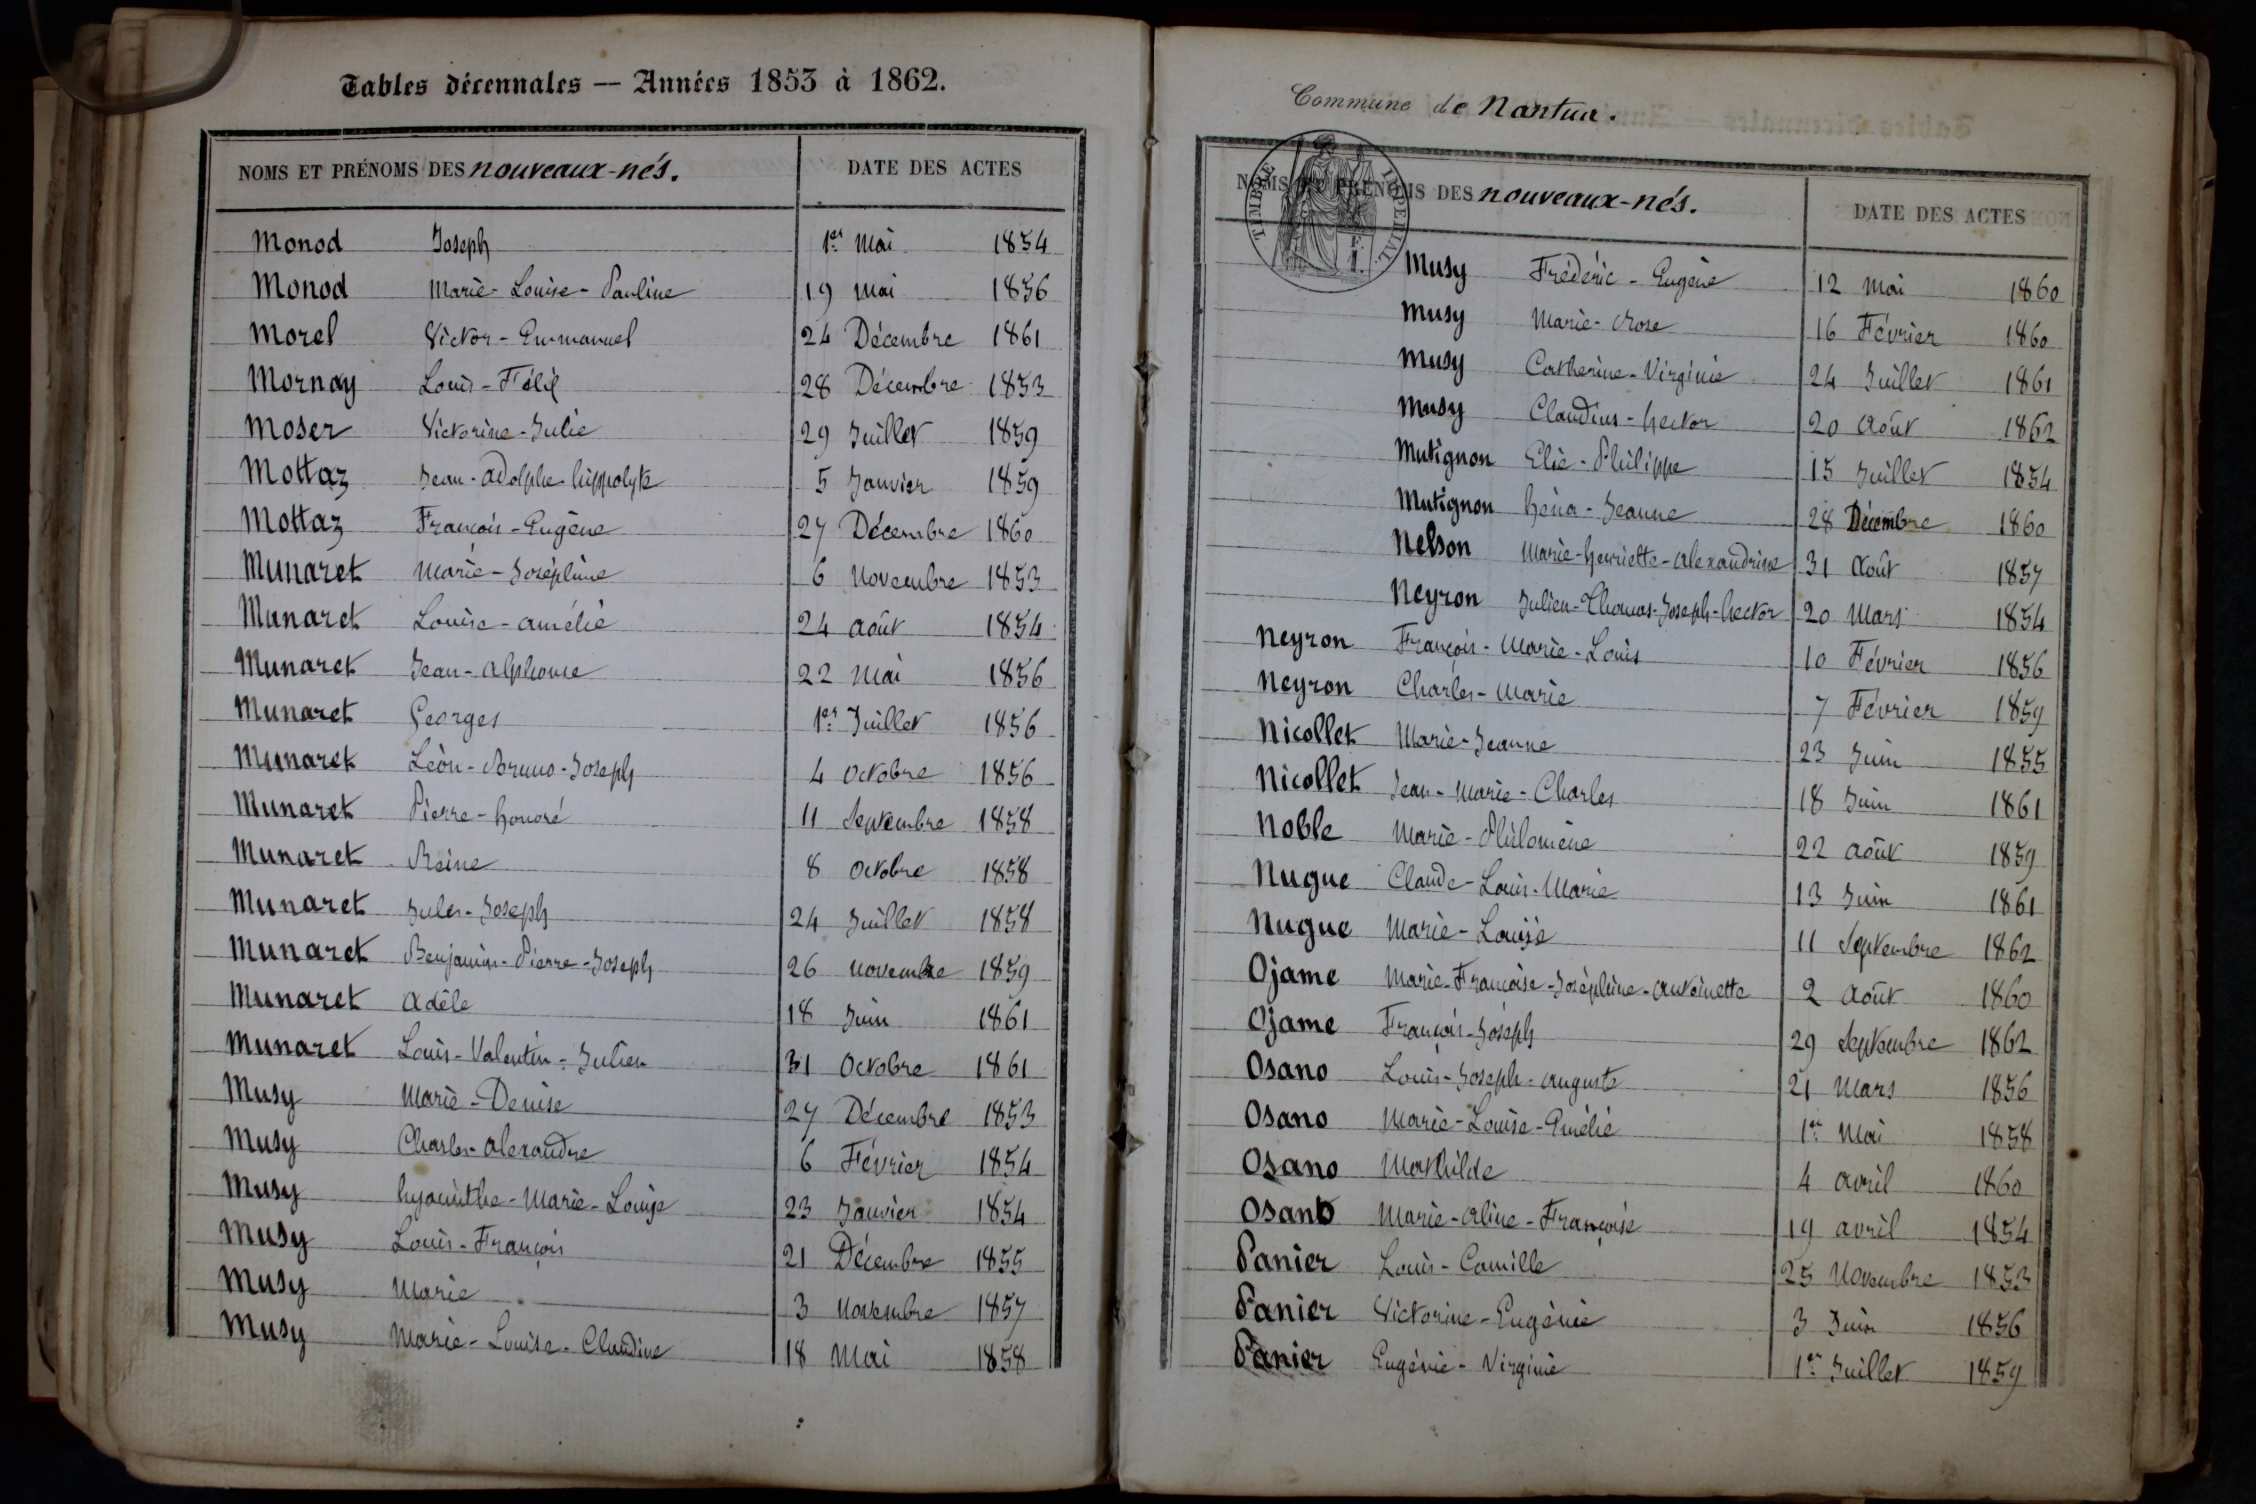 Tables décennales — Années 1853 à 1862.
NOMS ET PRÉNOMS DES nouveaux-nés. DATE DES ACTES
Monod Joseph 1er Mai 1854
Monod Marie-Louise-Pauline 19 Mai 1856
Morel Victor-Emmanuel 24 Décembre 1861
Mornay Louis-Félix 28 Décembre 1853
Moser Victorine-Julie 29 Juillet 1859
Mottaz Jean-Adolphe-hippolyte 5 Janvier 1859
Mottaz François-Eugène 27 Décembre 1860
Munaret Marie-Joséphine 6 Novembre 1853
Munaret Louise-Amélie 24 Août 1854
Munaret Jean-Alphonse 22 Mai 1856
Munaret Georges 1er Juillet 1856
Munaret Léon-Bruno-Joseph 4 Octobre 1856
Munaret Pierre-honoré 11 Septembre 1858
Munaret Reine 8 Octobre 1858
Munaret Jules-Joseph 24 Juillet 1858
Munaret Benjamin-Pierre-Joseph 26 Novembre 1859
Munaret Adèle 18 Juin 1861
Munaret Louis-Valentin-Julien 31 Octobre 1861
Musy Marie-Denise 27 Décembre 1853
Musy Charles-Alexandre 6 Février 1854
Musy hyacinthe-Marie-Louise 23 Janvier 1854
Musy Louis-François 21 Décembre 1855
Musy Marie 3 Novembre 1857
Musy Marie-Louise-Claudine 18 Mai 1858
Commune de Nantua.
TIMBRE IMPERIAL
NOMS ET PRÉNOMS DES nouveaux-nés. DATE DES ACTES
Musy Frédéric-Eugène 12 Mai 1860
Musy Marie-Rose 16 Février 1860
Musy Catherine-Virginie 24 Juillet 1861
Musy Claudius-hector 20 Août 1862
Mutignon Elie-Philippe 15 Juillet 1854
Mutignon héna-Jeanne 28 Décembre 1860
Nelson Marie-henriette-Alexandrine 31 Août 1857
Neyron Julien-Thomas-Joseph-hector 20 Mars 1854
Neyron François-Marie-Louis 10 Février 1856
Neyron Charles-Marie 7 Février 1859
Nicollet Marie-Jeanne 23 Juin 1855
Nicollet Jean-Marie-Charles 18 Juin 1861
Noble Marie-Philomène 22 Août 1859
Nugue Claude-Louis-Marie 13 Juin 1861
Nugue Marie-Louise 11 Septembre 1862
Ojame Marie-Françoise-Joséphine-Antoinette 2 Août 1860
Ojame François-Joseph 29 Septembre 1862
Osano Louis-Joseph-Auguste 21 Mars 1856
Osano Marie-Louise-Emélie 1er Mai 1858
Osano Mathilde 4 Avril 1860
Osano Marie-Aline-Françoise 19 Avril 1854
Panier Louis-Camille 25 Novembre 1853
Panier Victorine-Eugénie 3 Juin 1856
Panier Eugénie-Virginie 1er Juillet 1859